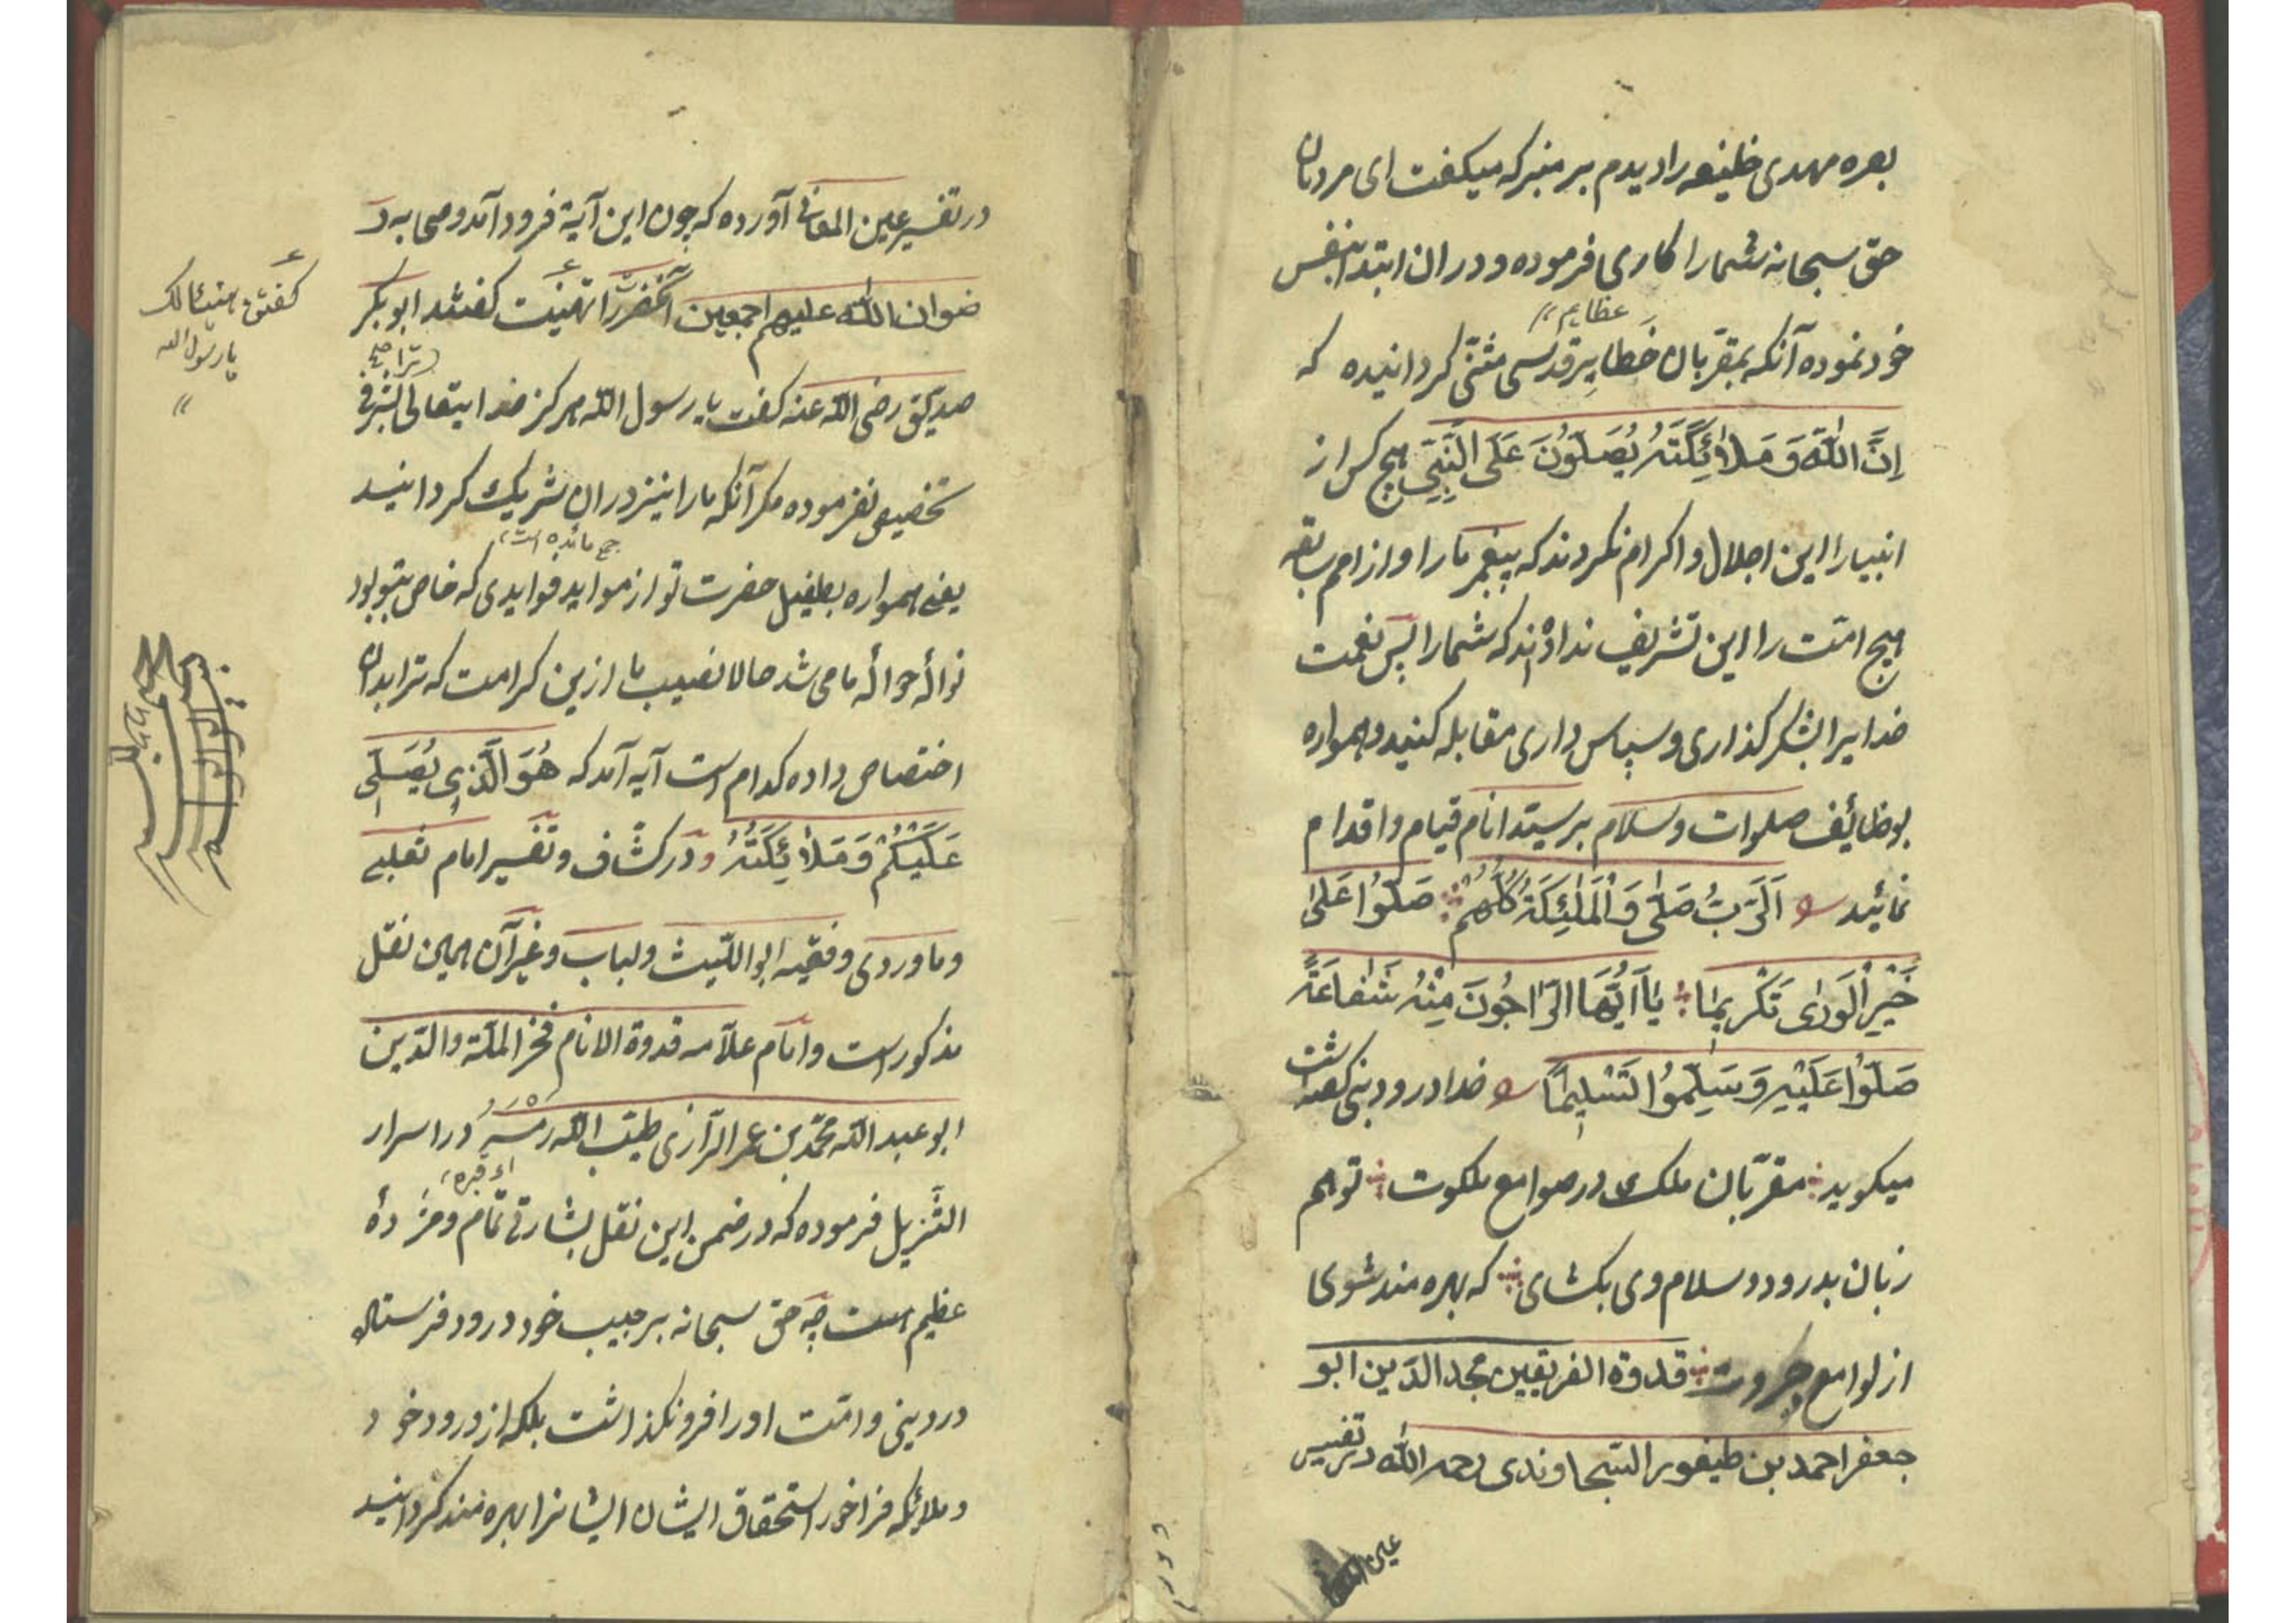 بصره مهدی خلیفه را دیدم بر منبر که میکفت ای مردمان
حق سبحانه شمارا کاری فرموده و در ان ابتدا بنفس
عظایم
خود نموده آنکه بمقربان خطایر قدسی مثنّی کردانیده که
اِنَّ اللّٰهَ وَ مَلٰائِكَتَهُ يُصَلُّونَ عَلَى النَّبِىِّ هیچ کس از
انبیا را این اجلال و اکرام نکردند که پیغمبر ما را و از امم سابقه
هیچ امّت را این تشریف نداده‌اند که شمارا پس نعمت
خدایرا بشکر کذاری و سپاس داری مقابله کنید و همواره
بوظائف صلوات و سلام بر سیّد انام قیام و اقدام
نمائید اَلرَّبُّ صَلّٰى وَالْمَلٰئِكَةُ كُلُّهُمْ صَلُّوا عَلٰى
خَيْرِ الْوَرٰى تَكْرِيمًا يٰا اَيُّهَا الرّٰاجُونَ مِنْهُ شَفٰاعَةً
صَلُّوا عَلَيْهِ وَسَلِّمُوا تَسْلِيمًا خدا درود نبی کفته است
میکوید مقرّبان ملک در صوامع ملکوت تو هم
زبان بدرود و سلام وی بکشای که بهره مند شوی
از لوامع جبروت قدوة الفریقین مجد الدّین ابو
جعفر احمد بن طیفور السّجاوندی رحمه اللّٰه در تفسیر
عین المعانی
در تفسیر عین المعانی آورده که چون این آیة فرود آمد و صحابه ر
ضوان اللّٰه علیهم اجمعین آنحضرت را تهنیت کفتند ابو بکر
کفتن هنیئا لک
یا رسول الله
ترا صح
صدیق رضی اللّه عنه کفت یا رسول اللّه هرکز خدایتعالی بشرفی
تخصیص نفرموده مکر آنکه ما را نیز دران شریک کردانید
جمع مائده است
یعنی همواره بطفیل حضرت تو از مواید فوایدی که خاص بتو بود
نواله حوالهٔ ما می شد حالا نصیب ما ازین کرامت که ترا بدان
اختصاص داده کدام است آیه آمد که هُوَ الَّذِى يُصَلِّى
عَلَيْكُمْ وَ مَلٰائِكَتُهُ و در کشّاف و تفسیر امام ثعلبی
و ماوردی و فقیه ابو اللّیث و لباب و غیر آن همین نقل
مذکور است و امام علّامه قدوة الانام فخر الملّة والدّین
ابو عبد اللّه محمّد بن عمر الرّازی طیّب اللّه رَمْسَهُ در اسرار
ای قبره
التّنزیل فرموده که در ضمن این نقل بشارتی تمام و مژدهٔ
عظیم است چه حق سبحانه بر حبیب خود درود فرستاد
درد بنی و امّت او را فرو نکذاشت بلکه از درود خود
و ملائکه فراخور استحقاق ایشان ایشانرا بهره مند کردانید